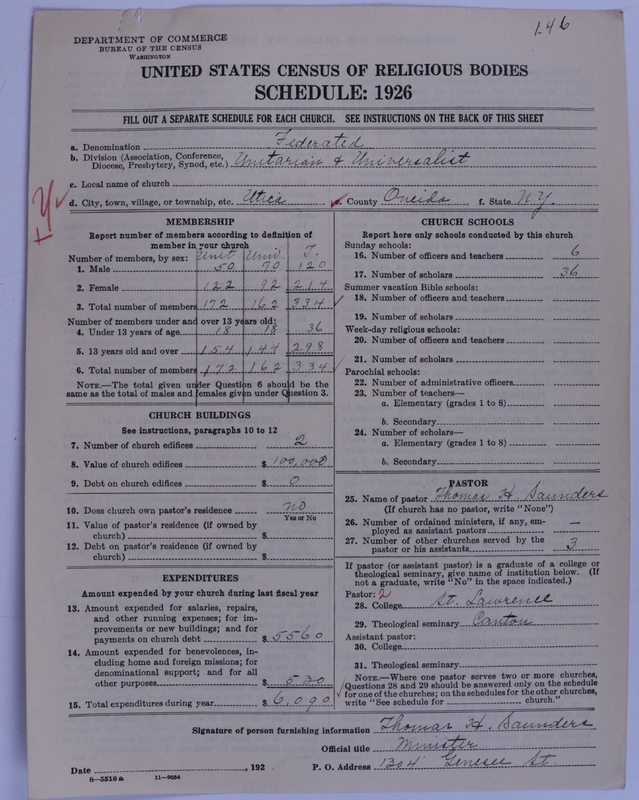 146
DEPARTMENT OF COMMERCE
BUREAU OF THE CENSUS
WASHINGTON
UNITED STATES CENSUS OF RELIGIOUS BODIES
SCHEDULE: 1926
FILL OUT A SEPARATE SCHEDULE FOR EACH CHURCH. SEE INSTRUCTIONS ON THE BACK OF THIS SHEET
a. Denomination Federated
b. Division (Association, Conference, Diocese, Presbytery, Synod, etc.) Unitarian & Universalist
c. Local name of church
d. City, town, village, or township, etc. Utica e. County Oneida f. State N.Y.
MEMBERSHIP
Report number of members according to definition of
member in your church
Number of members, by sex: Unit Univ. T.
1. Male 50 70 120
2. Female 122 92 214
3. Total number of members 172 162 334
Number of members under and over 13 years old:
4. Under 13 years of age 18 18 36
5. 13 years old and over 154 144 298
6. Total number of members 172 162 334
NOTE.—The total given under Question 6 should be the
same as the total of males and females given under Question 3.
CHURCH BUILDINGS
See instructions, paragraphs 10 to 12
7. Number of church edifices 2
8. Value of church edifices $ 100,000
9. Debt on church edifices $ 0
10. Does church own pastor's residence no
Yes or No
11. Value of pastor's residence (if owned by
church) $
12. Debt on pastor's residence (if owned by
church) $
EXPENDITURES
Amount expended by your church during last fiscal year
13. Amount expended for salaries, repairs,
and other running expenses; for im-
provements or new buildings; and for
payments on church debt $ 5560
14. Amount expended for benevolences, in-
cluding home and foreign missions; for
denominational support; and for all
other purposes $ 530
15. Total expenditures during year $ 6,090
CHURCH SCHOOLS
Report here only schools conducted by this church
Sunday schools:
16. Number of officers and teachers 6
17. Number of scholars 36
Summer vacation Bible schools:
18. Number of officers and teachers
19. Number of scholars
Week-day religious schools:
20. Number of officers and teachers
21. Number of scholars
Parochial schools:
22. Number of administrative officers
23. Number of teachers—
a. Elementary (grades 1 to 8)
b. Secondary
24. Number of scholars—
a. Elementary (grades 1 to 8)
b. Secondary
PASTOR
25. Name of pastor Thomas H. Saunders
(If church has no pastor, write "None")
26. Number of ordained ministers, if any, em-
ployed as assistant pastors —
27. Number of other churches served by the
pastor or his assistants 3
If pastor (or assistant pastor) is a graduate of a college or
theological seminary, give name of institution below. (If
not a graduate, write "No" in the space indicated.)
Pastor: 2
28. College St. Lawrence
29. Theological seminary Canton
Assistant pastor:
30. College
31. Theological seminary
NOTE.—Where one pastor serves two or more churches,
Questions 28 and 29 should be answered only on the schedule
for one of the churches; on the schedules for the other churches,
write "See schedule for church."
Signature of person furnishing information Thomas H. Saunders
Official title Minister
Date , 192 P. O. Address 1304 Genesee St.
8-5518 a 11-9054